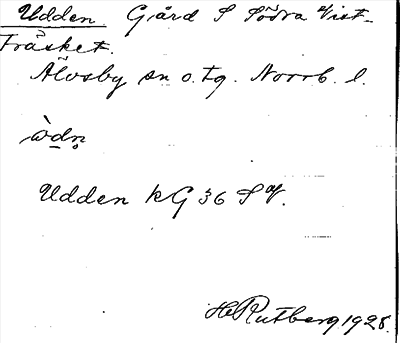 Udden Gård S Södra Vist-
träsket.
Älvsby sn o. tg. Norrb. l.
ùdn̥
Udden KG 36 S V.
H Rutberg 1928.